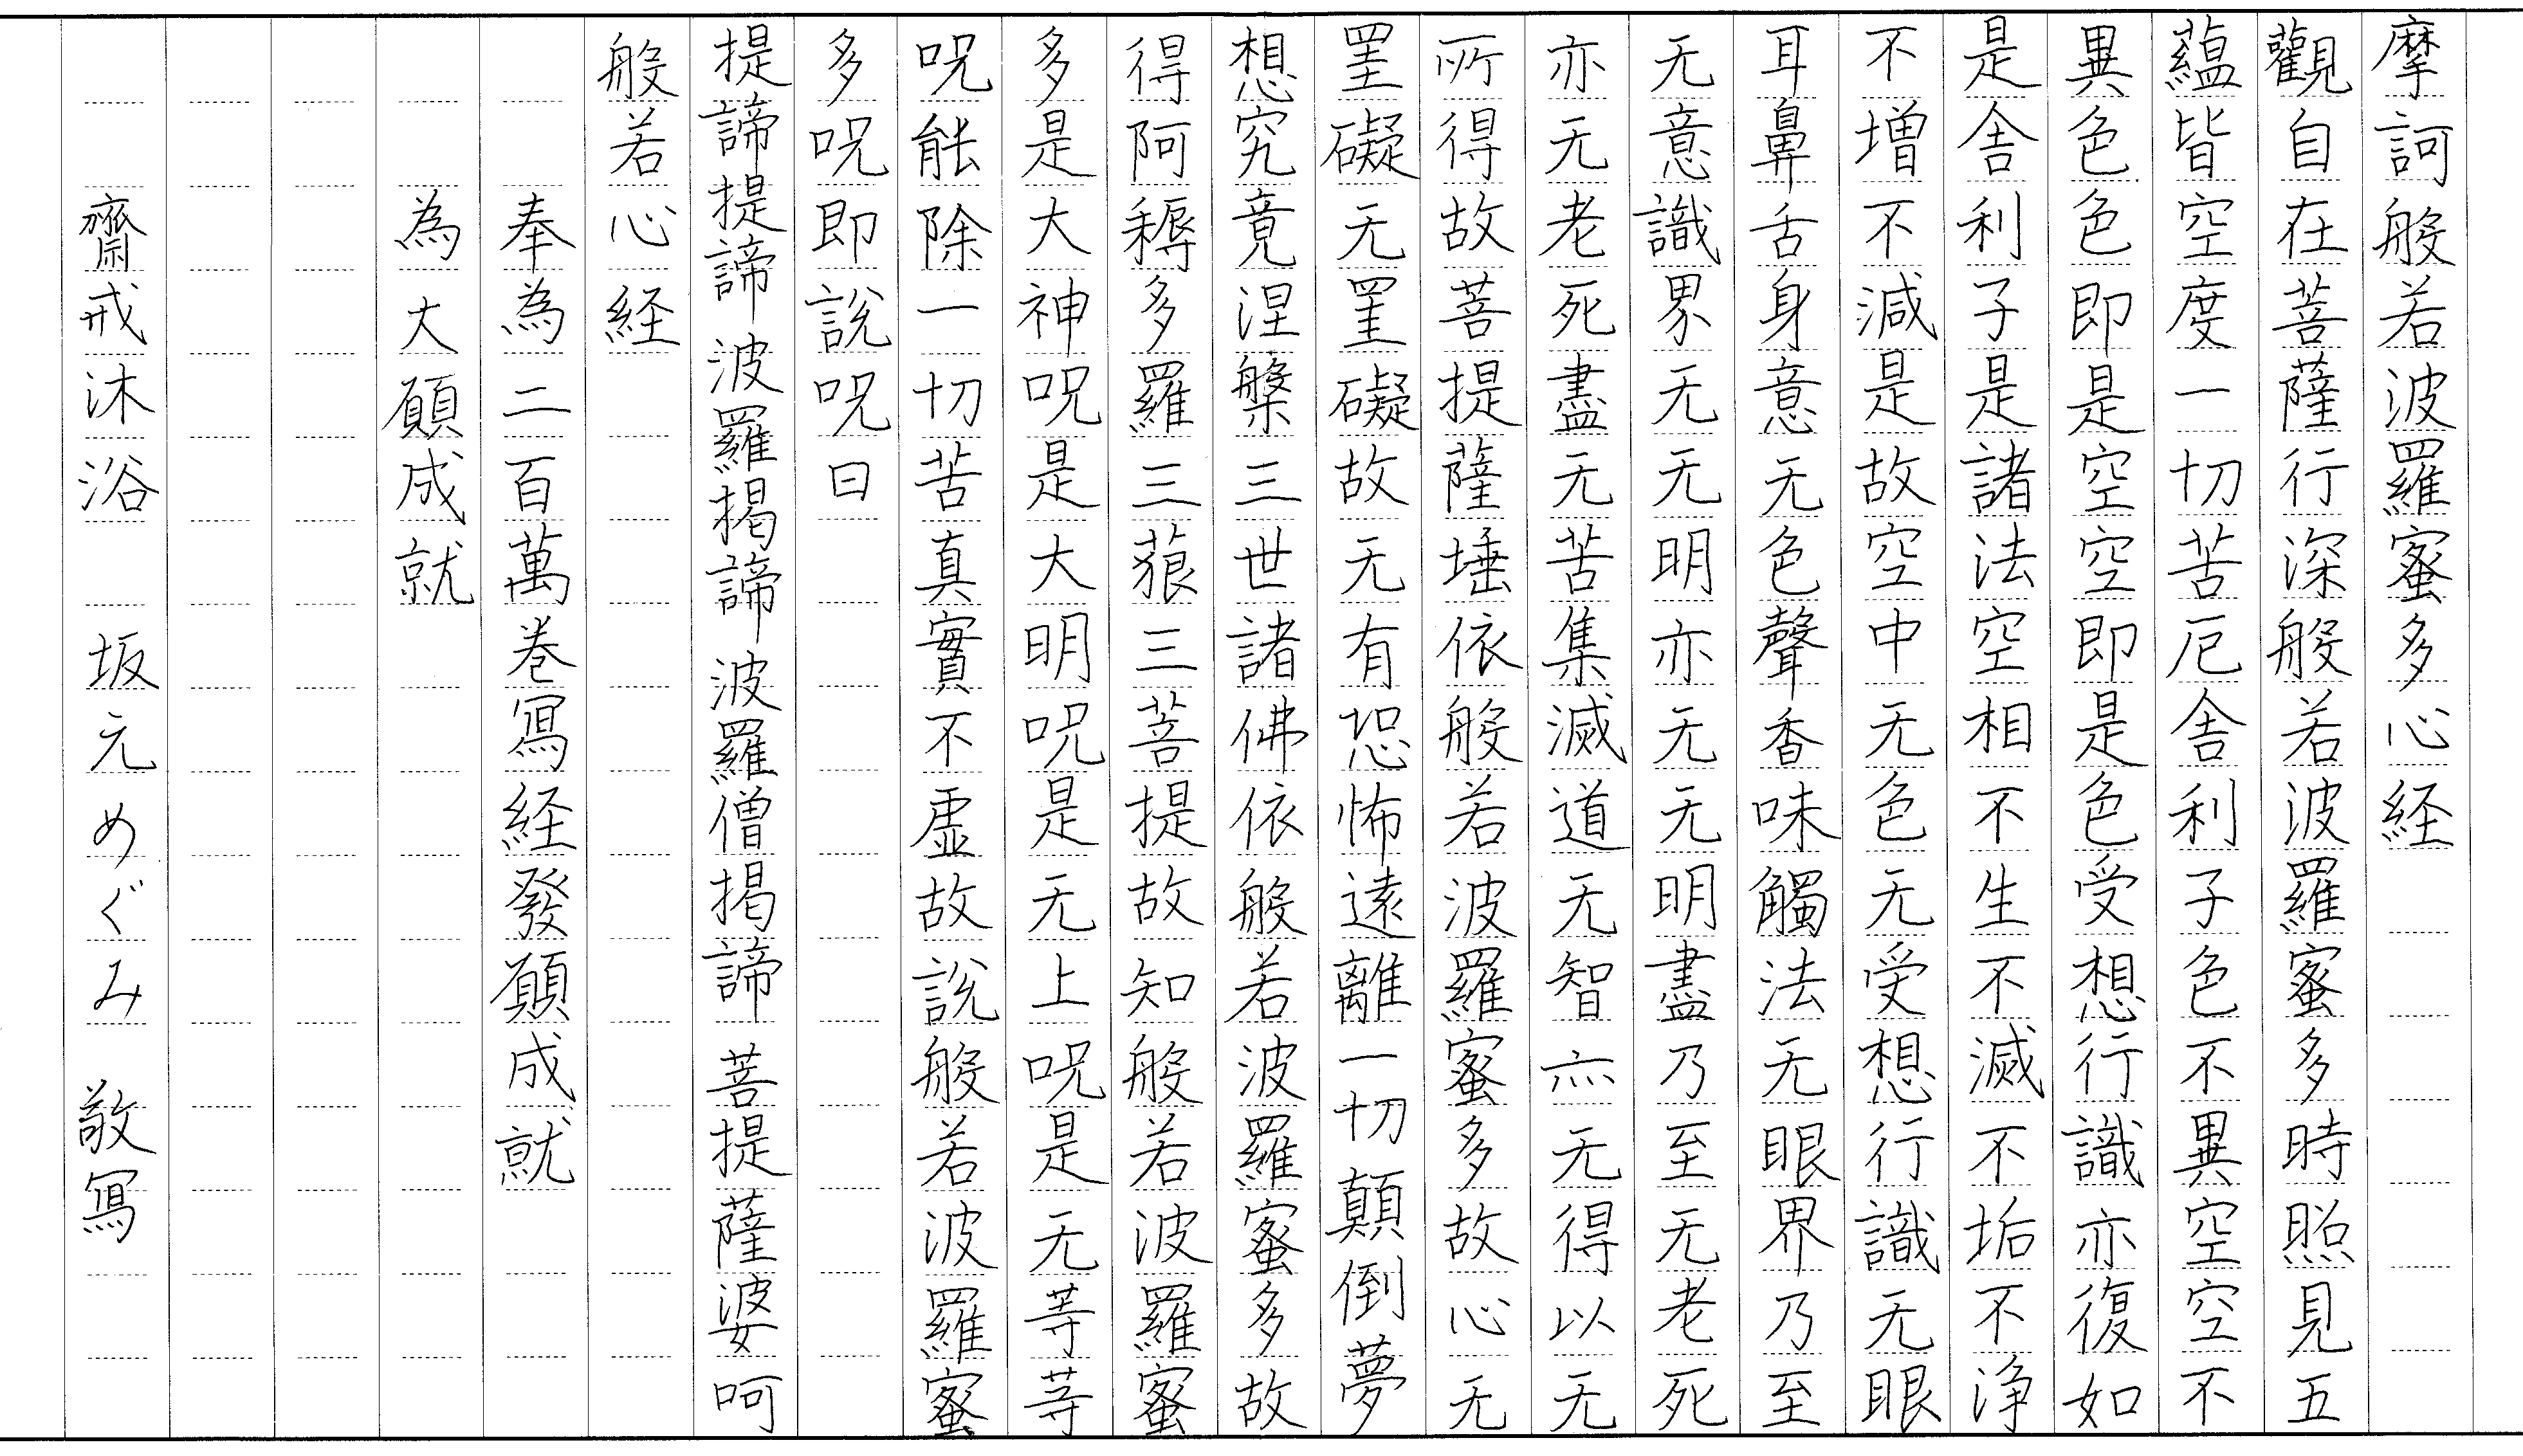 摩訶般若波羅蜜多心経
觀自在菩薩行深般若波羅蜜多時照見五
蘊皆空度一切苦厄舎利子色不異空空不
異色色即是空空即是色受想行識亦復如
是舎利子是諸法空相不生不滅不垢不浄
不増不減是故空中无色无受想行識无眼
耳鼻舌身意无色聲香味觸法无眼界乃至
无意識界无无明亦无无明盡乃至无老死
亦无老死盡无苦集滅道无智亦无得以无
所得故菩提薩埵依般若波羅蜜多故心无
罣礙无罣礙故无有恐怖遠離一切顛倒夢
想究竟涅槃三世諸佛依般若波羅蜜多故
得阿耨多羅三藐三菩提故知般若波羅蜜
多是大神呪是大明呪是无上呪是无等等
呪能除一切苦真實不虚故説般若波羅蜜
多呪即説呪曰
提諦提諦波羅掲諦波羅僧掲諦菩提薩婆呵
般若心経
奉為二百萬巻寫経發願成就
為大願成就
齋戒沐浴 坂元めぐみ 敬寫